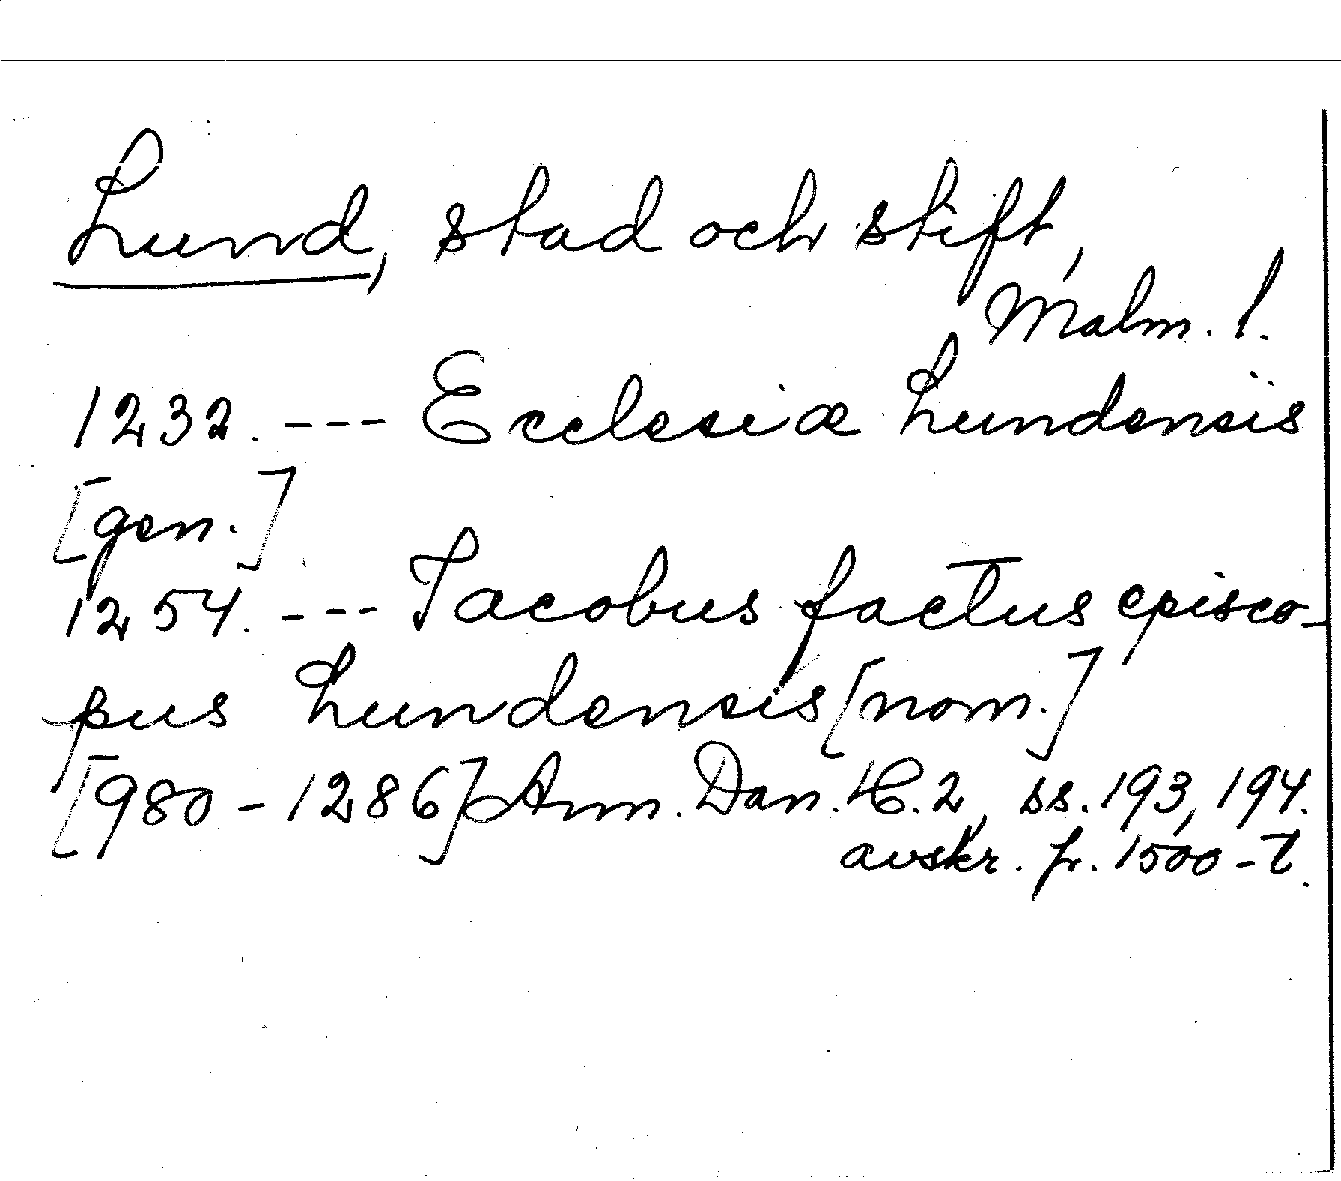 Lund, stad och stift,
Malm. l.
1232. --- Ecclesiæ Lundensis
[gen.]
1254. --- Iacobus factus episco-
pus Lundensis [nom.]
[980-1286] Ann. Dan. H. 2, ss. 193, 194.
avskr. fr. 1500-t.